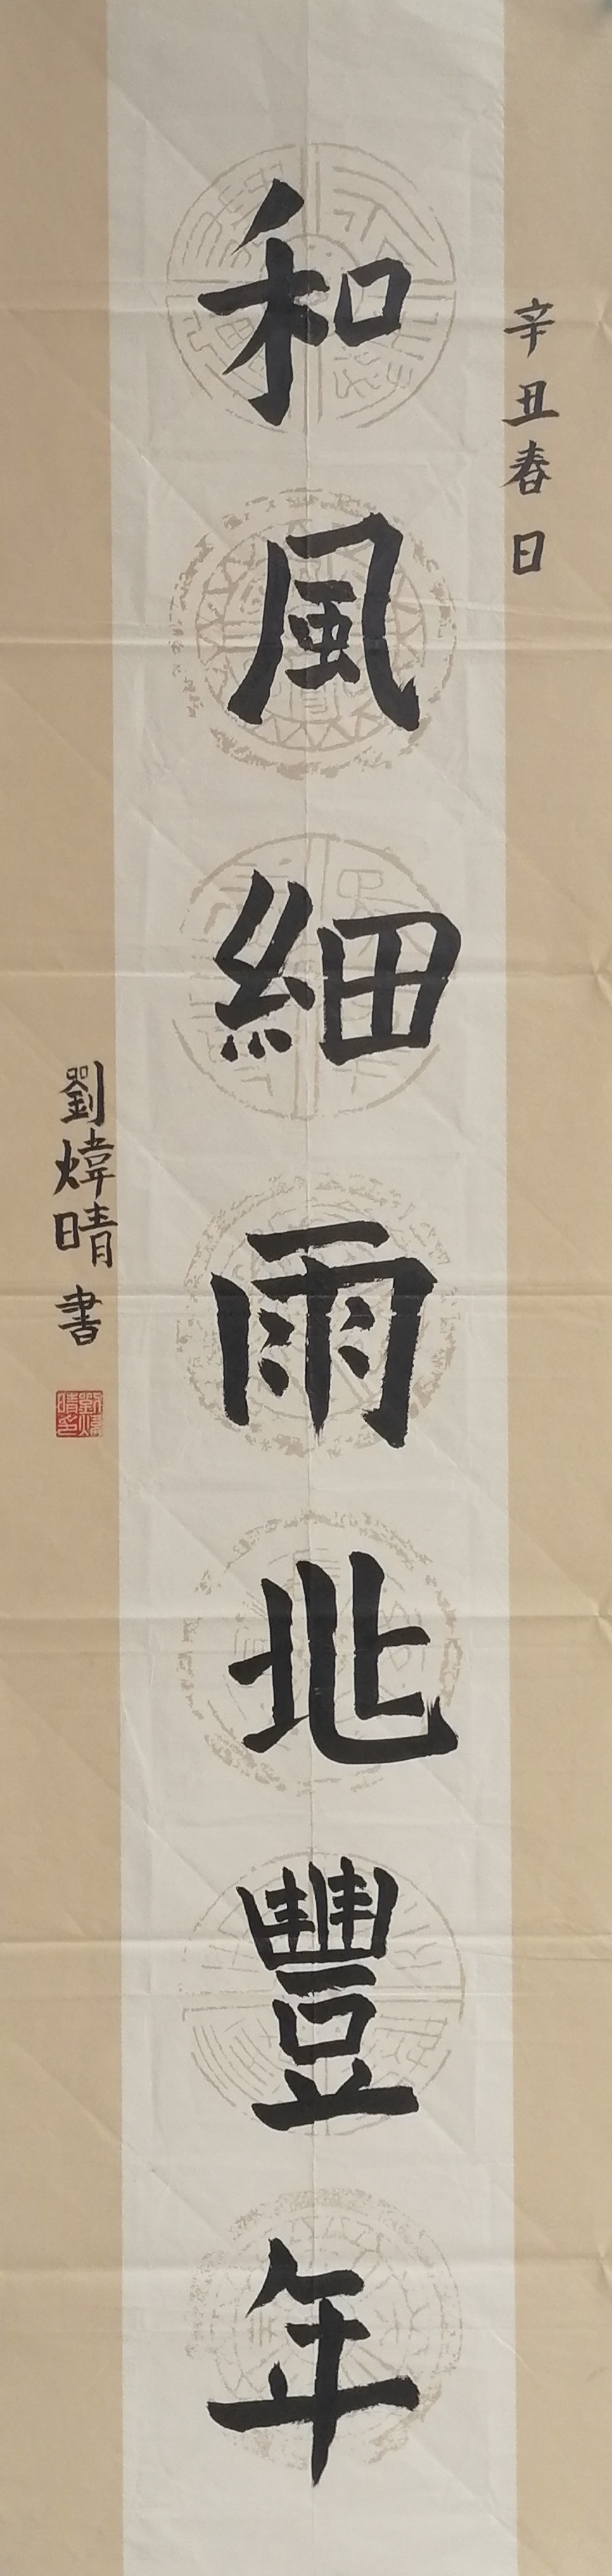 辛丑春日
和風細雨兆豐年
劉煒晴書
劉煒
晴印